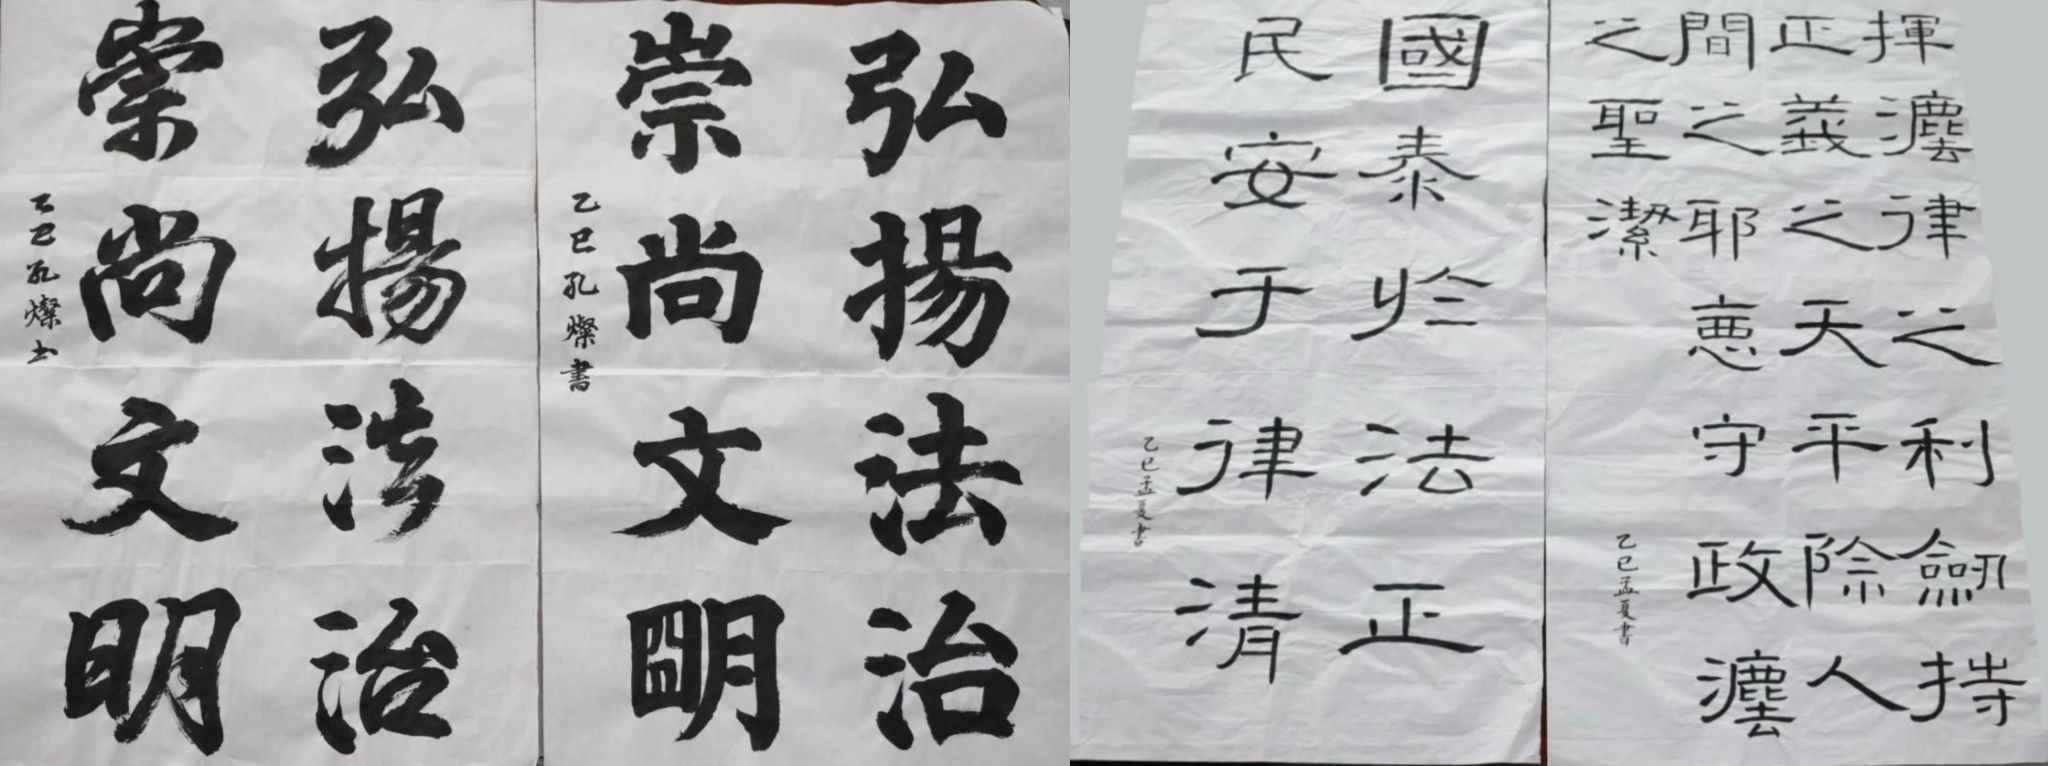 弘揚法治
崇尚文明
乙巳孔燦书
弘揚法治
崇尚文明
乙巳孔燦書
國泰於法正
民安于律清
乙巳孟夏書
揮灋律之利劒持
正義之天平除人
間之耶悪守政灋
之聖潔
乙巳孟夏書